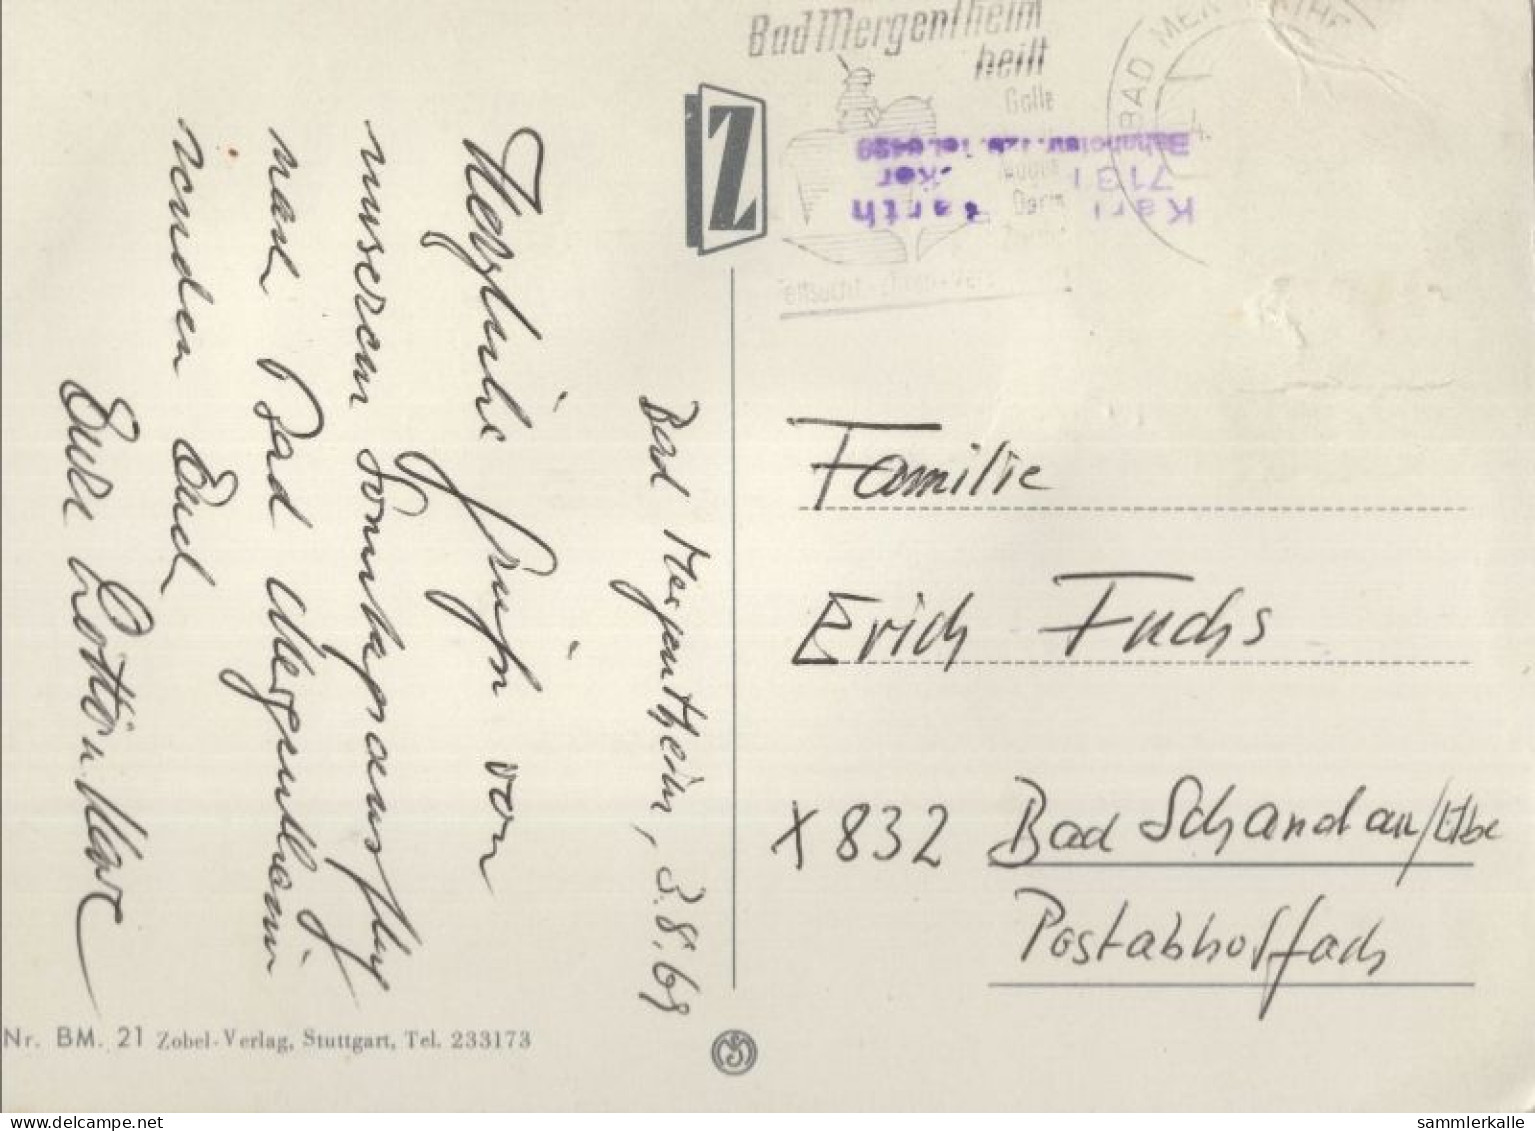 Bad Mergentheim
heilt
Galle
Darm
Z
Karl Barth
7131
Bad Mergentheim, 3.8.69
Herzliche Grüße von
unserem Sonntagsausflug
nach Bad Mergentheim
senden Euch
Eure
Familie
Erich Fuchs
X 832 Bad Schandau/Elbe
Postabholfach
Nr. BM. 21 Zobel-Verlag, Stuttgart, Tel. 233173
sammlerkalle